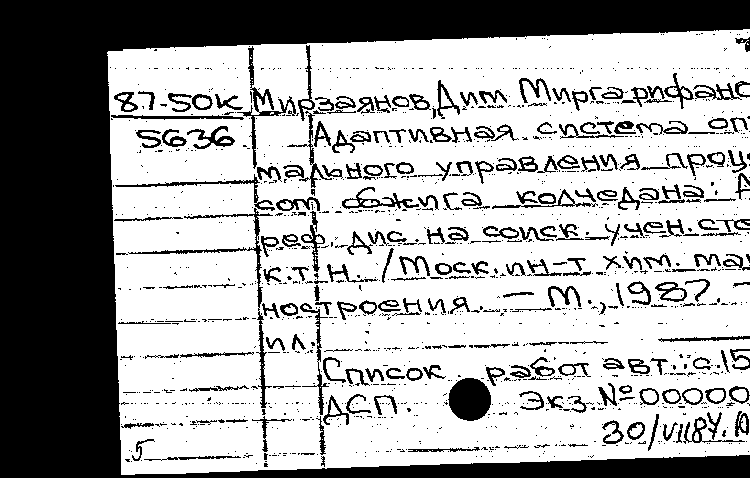 87-50к Мирзаянов, Дим Миргарифанс
5636 Адаптивная система оп
мального управления проц
сом обжига колчедана: А
реф. дис. на соиск. учен. сте
к.т.н. / Моск. ин-т хим. ма
ностроения. — М., 1987. —
ил.
Список работ авт.: с. 15
ДСП. Экз. № 00000
30/VII 87г.
5